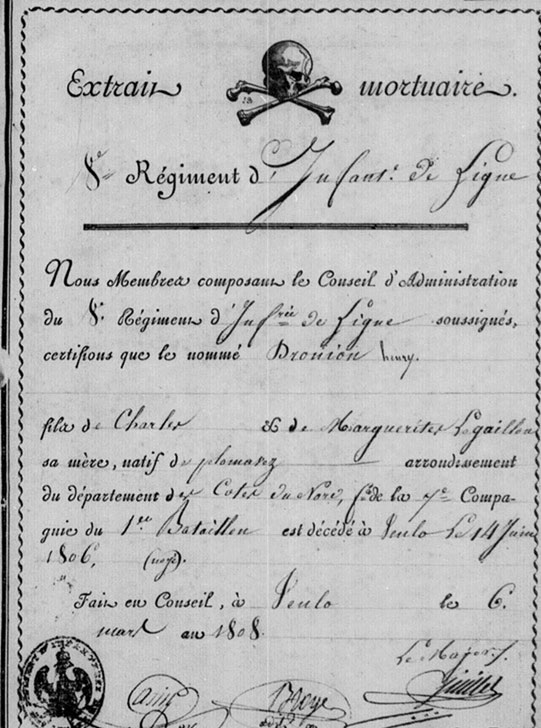 Extrait mortuaire.
8.e Régiment d'Infant.e de Ligne
Nous Membres composant le Conseil d'Administration
du 8.e Régiment d'Inf.rie de Ligne soussignés,
certifions que le nommé Drouion henry.
fils de Charles & de Marguerites Legaillou
sa mère, natif de plomasez arrondissement
du département des Cotes du Nord, f.er de la 7.e Compa-
gnie du 1.er Bataillon est décédé à Venlo Le 14 Juin
1806, (noyé).
Fait en Conseil, à Venlo le 6.
mars an 1808.
Le Major,